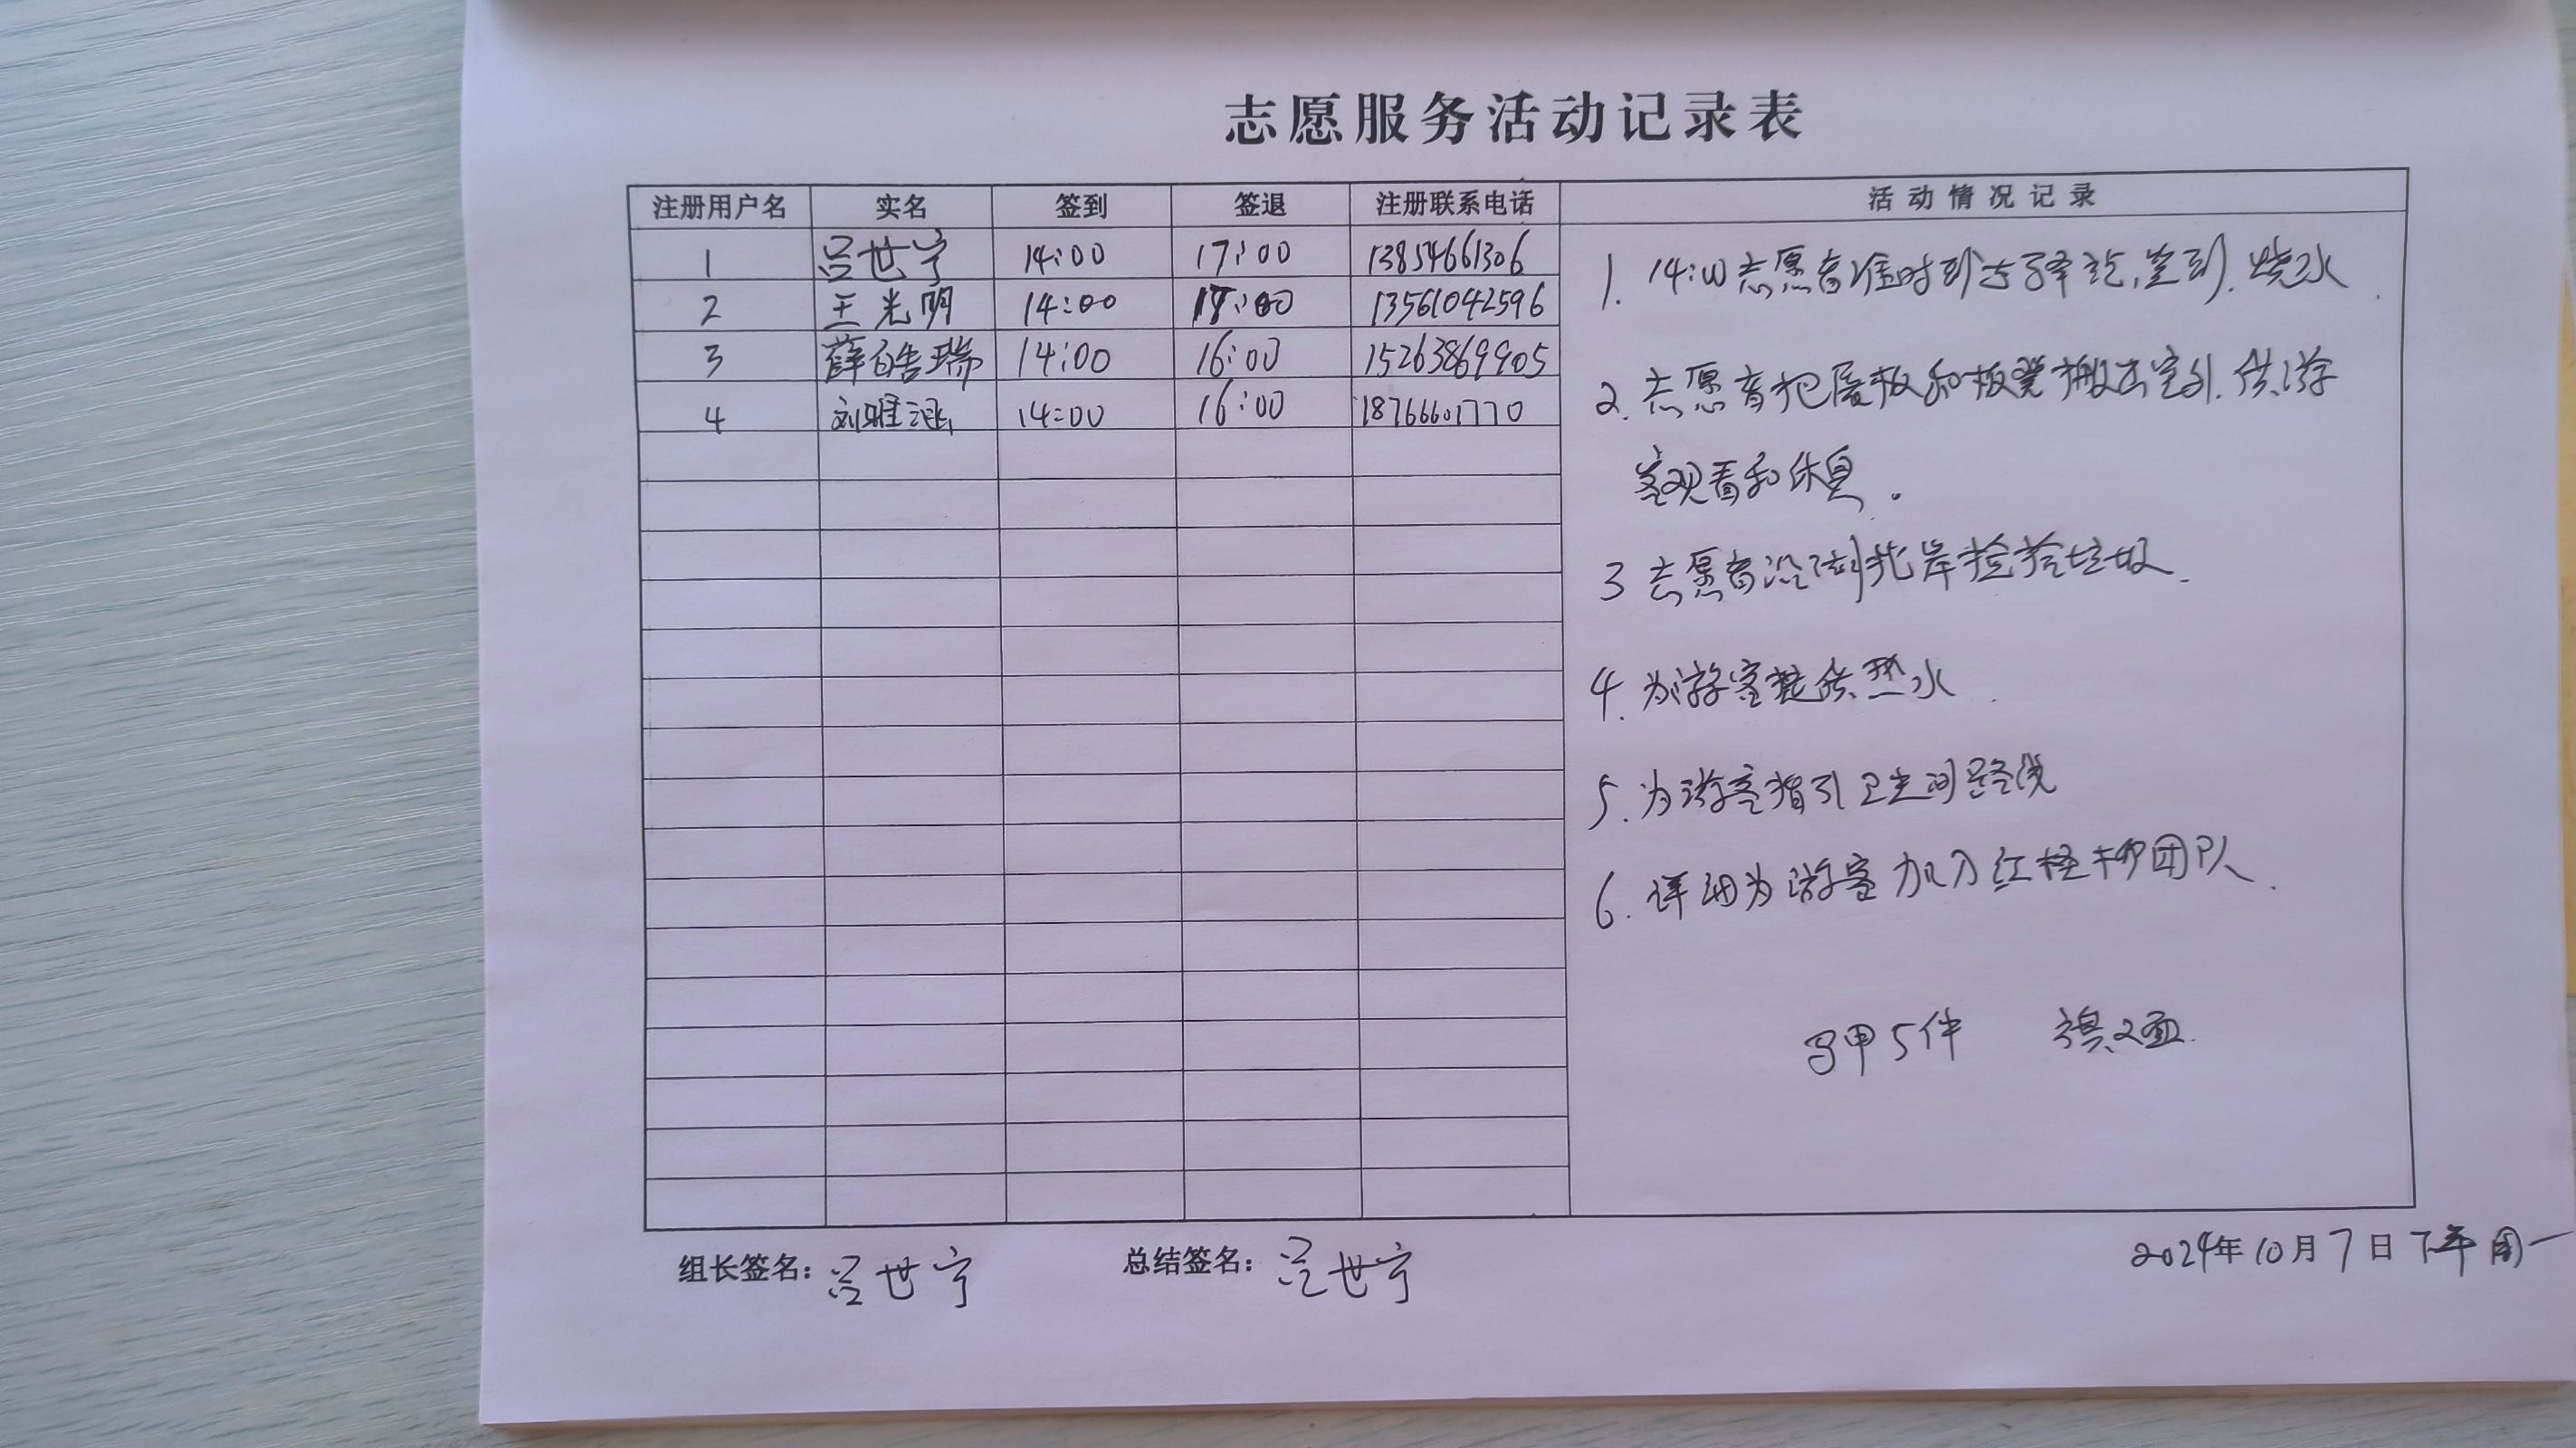 志愿服务活动记录表
注册用户名 实名 签到 签退 注册联系电话 活动情况记录
1 吕世宁 14:00 17:00 13854661306
2 王光明 14:00 17:00 13561042596
3 薛皓瑞 14:00 16:00 15263869905
4 刘雅涵 14:00 16:00 18766601770
1. 14:00志愿者准时到达驿站,签到.烧水.
2.志愿者把展板和板凳搬出室外.供游
客观看和休息.
3 志愿者沿湖北岸捡拾垃圾.
4.为游客提供热水.
5.为游客指引卫生间路线
6.详细为游客加入红柽柳团队.
马甲5件 旗2面.
组长签名:吕世宁 总结签名:吕世宁 2024年10月7日下午周一